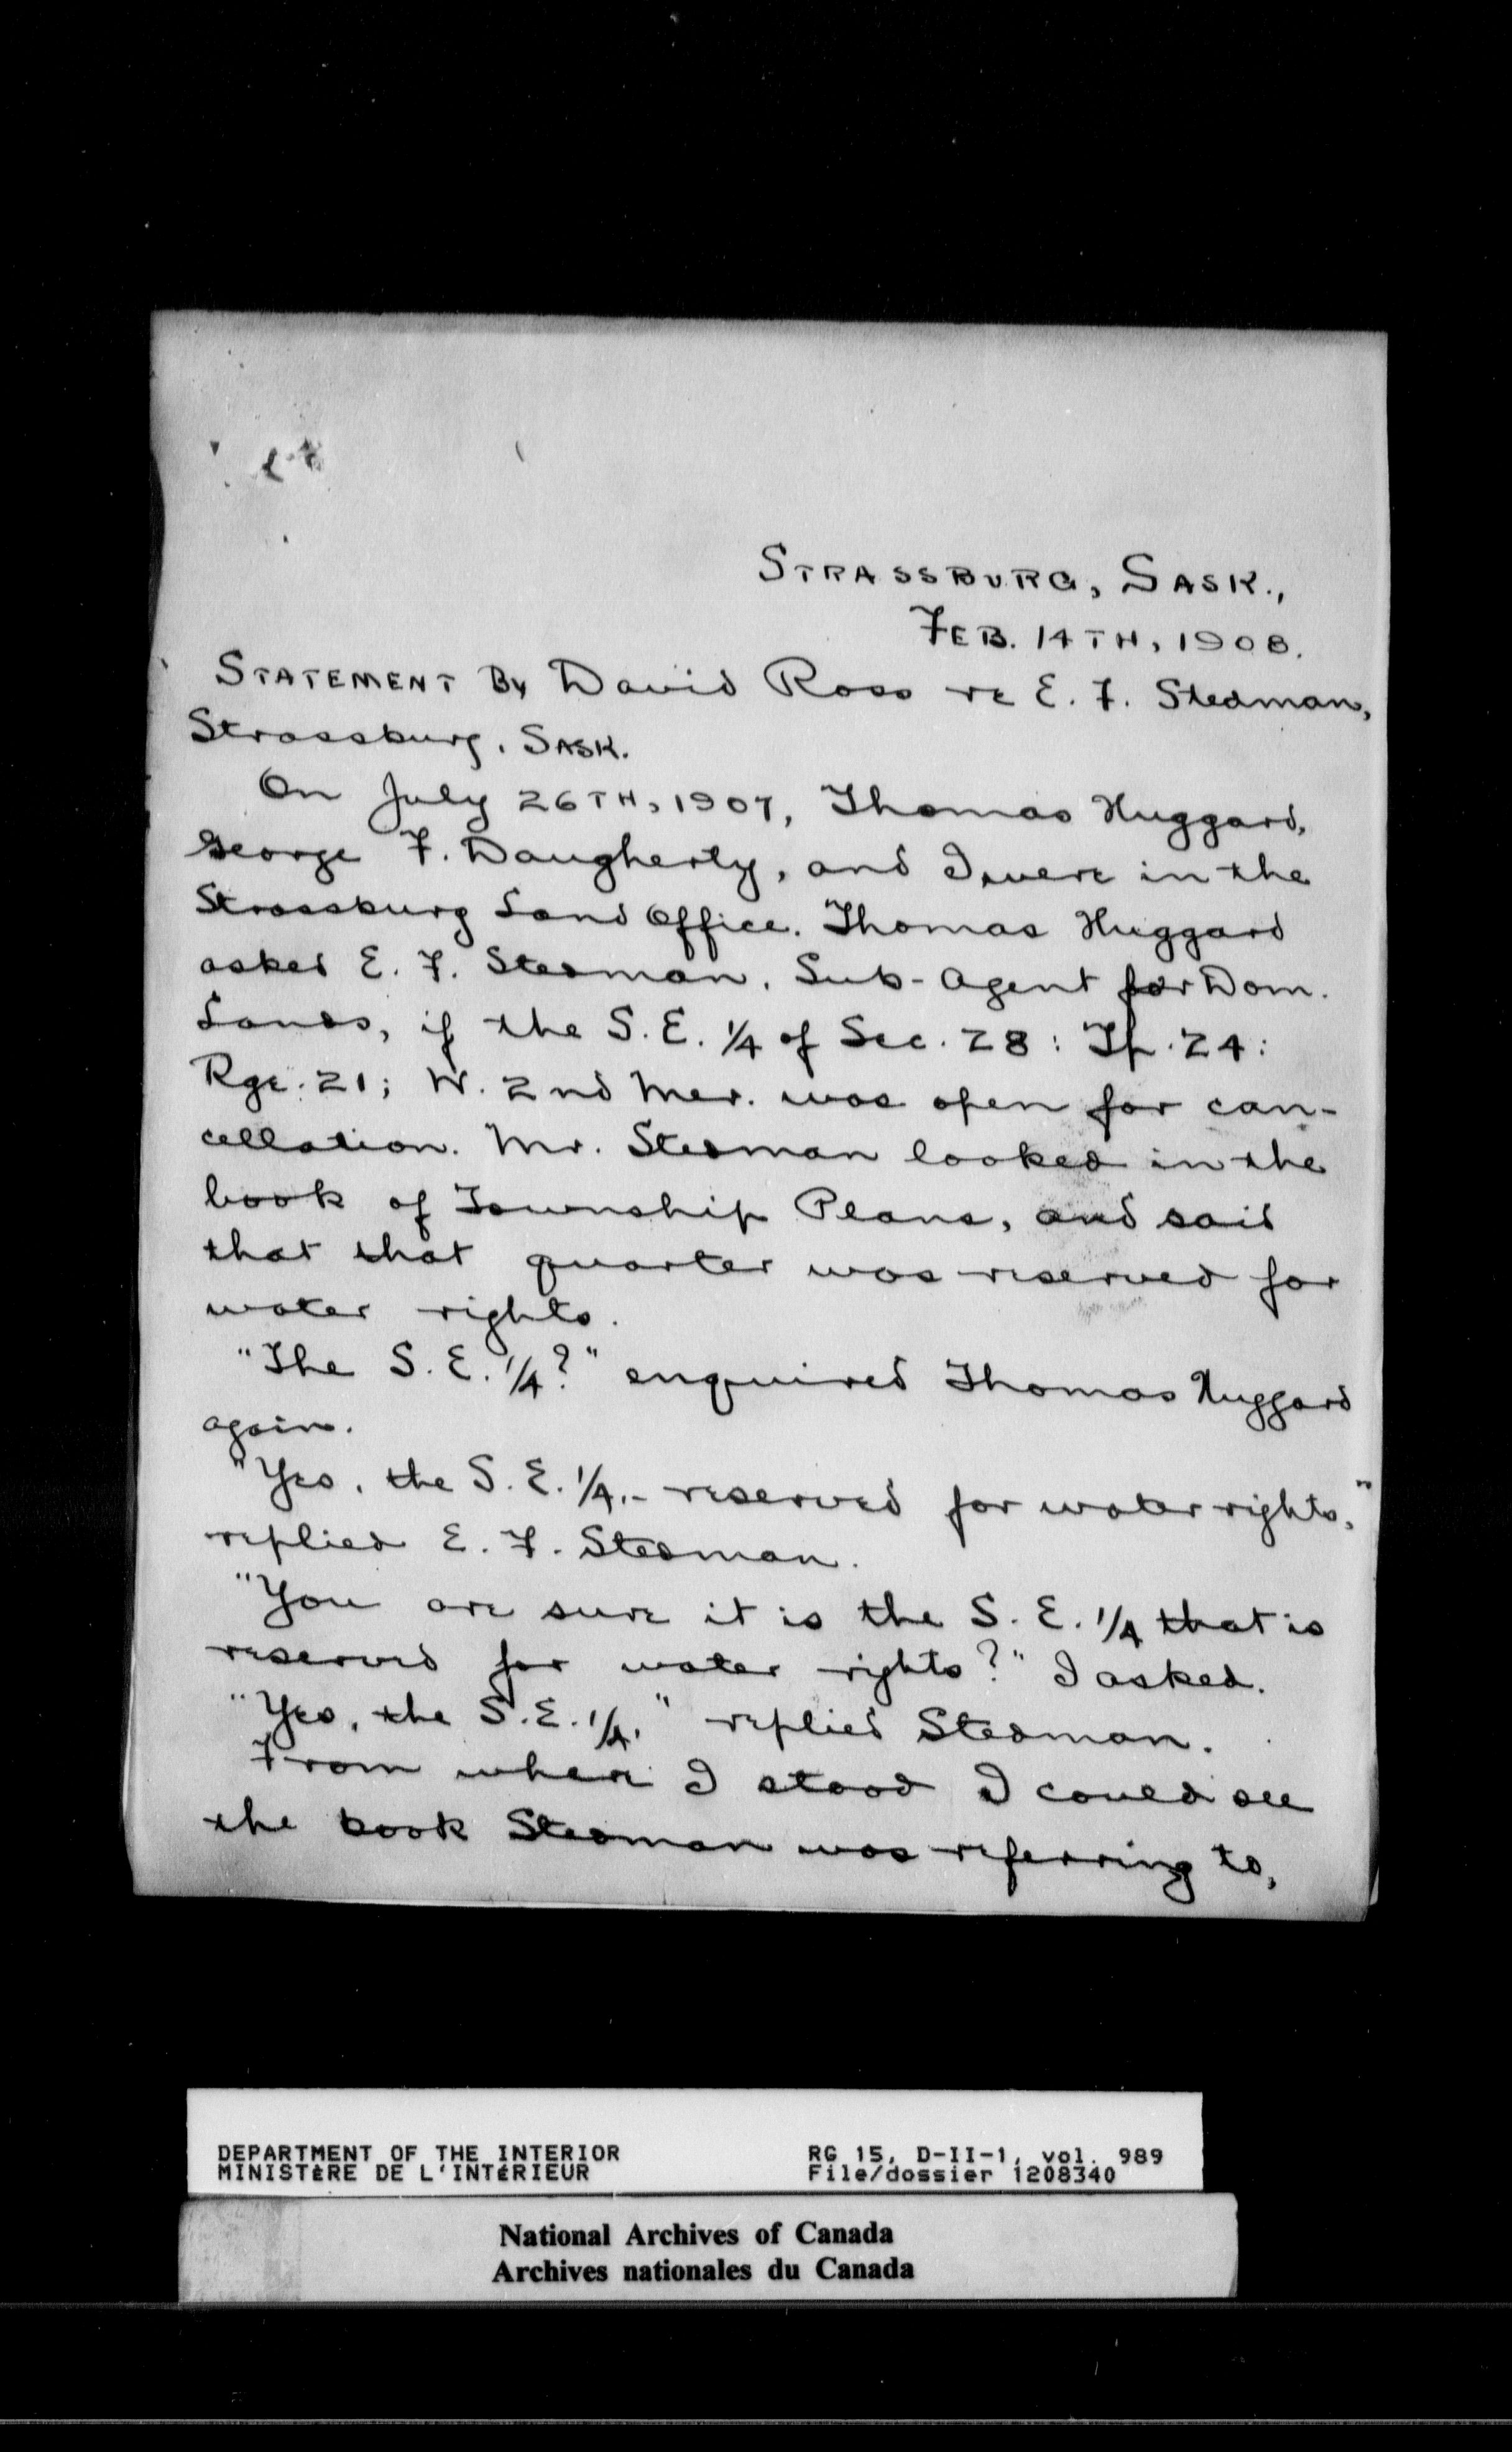 STRASSBURG, SASK.,
FEB. 14TH, 1908.
STATEMENT By David Ross re E. F. Stedman,
Strassburg, SASK.
On July 26TH, 1907, Thomas Huggard,
George F. Daugherty, and I, were in the
Strassburg Land Office. Thomas Huggard
asked E. F. Stedman, Sub-Agent for Dom.
Lands, if the S. E. 1/4 of Sec. 28: Tp. 24:
Rge. 21; W. 2nd Mer. was open for can-
cellation. Mr. Stedman looked in the
book of Township Plans, and said
that that quarter was reserved for
water rights.
"The S. E. 1/4?" enquired Thomas Huggard
again.
"Yes, the S. E. 1/4,- reserved for water rights,"
replied E. F. Stedman.
"You are sure it is the S. E. 1/4 that is
reserved for water rights?" I asked.
"Yes, the S. E. 1/4," replied Stedman.
From where I stood I could see
the book Stedman was referring to,
DEPARTMENT OF THE INTERIOR RG 15, D-II-1, vol. 989
MINISTÈRE DE L'INTÉRIEUR File/dossier 1208340
National Archives of Canada
Archives nationales du Canada